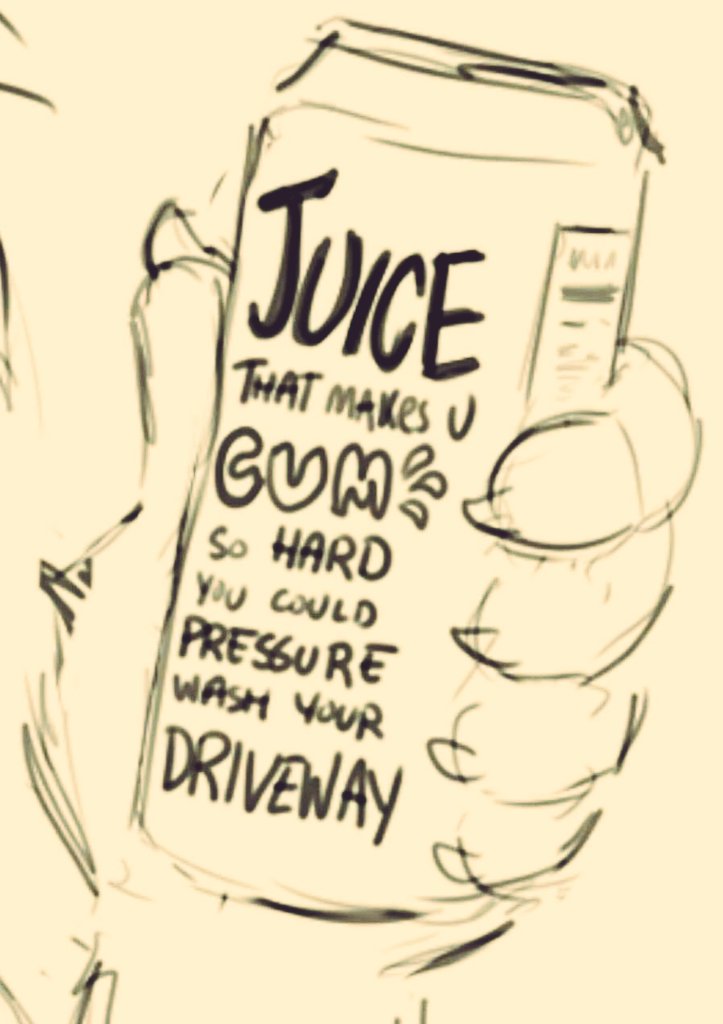 JUICE
THAT MAKES U
CUM
SO HARD
YOU COULD
PRESSURE
WASH YOUR
DRIVEWAY